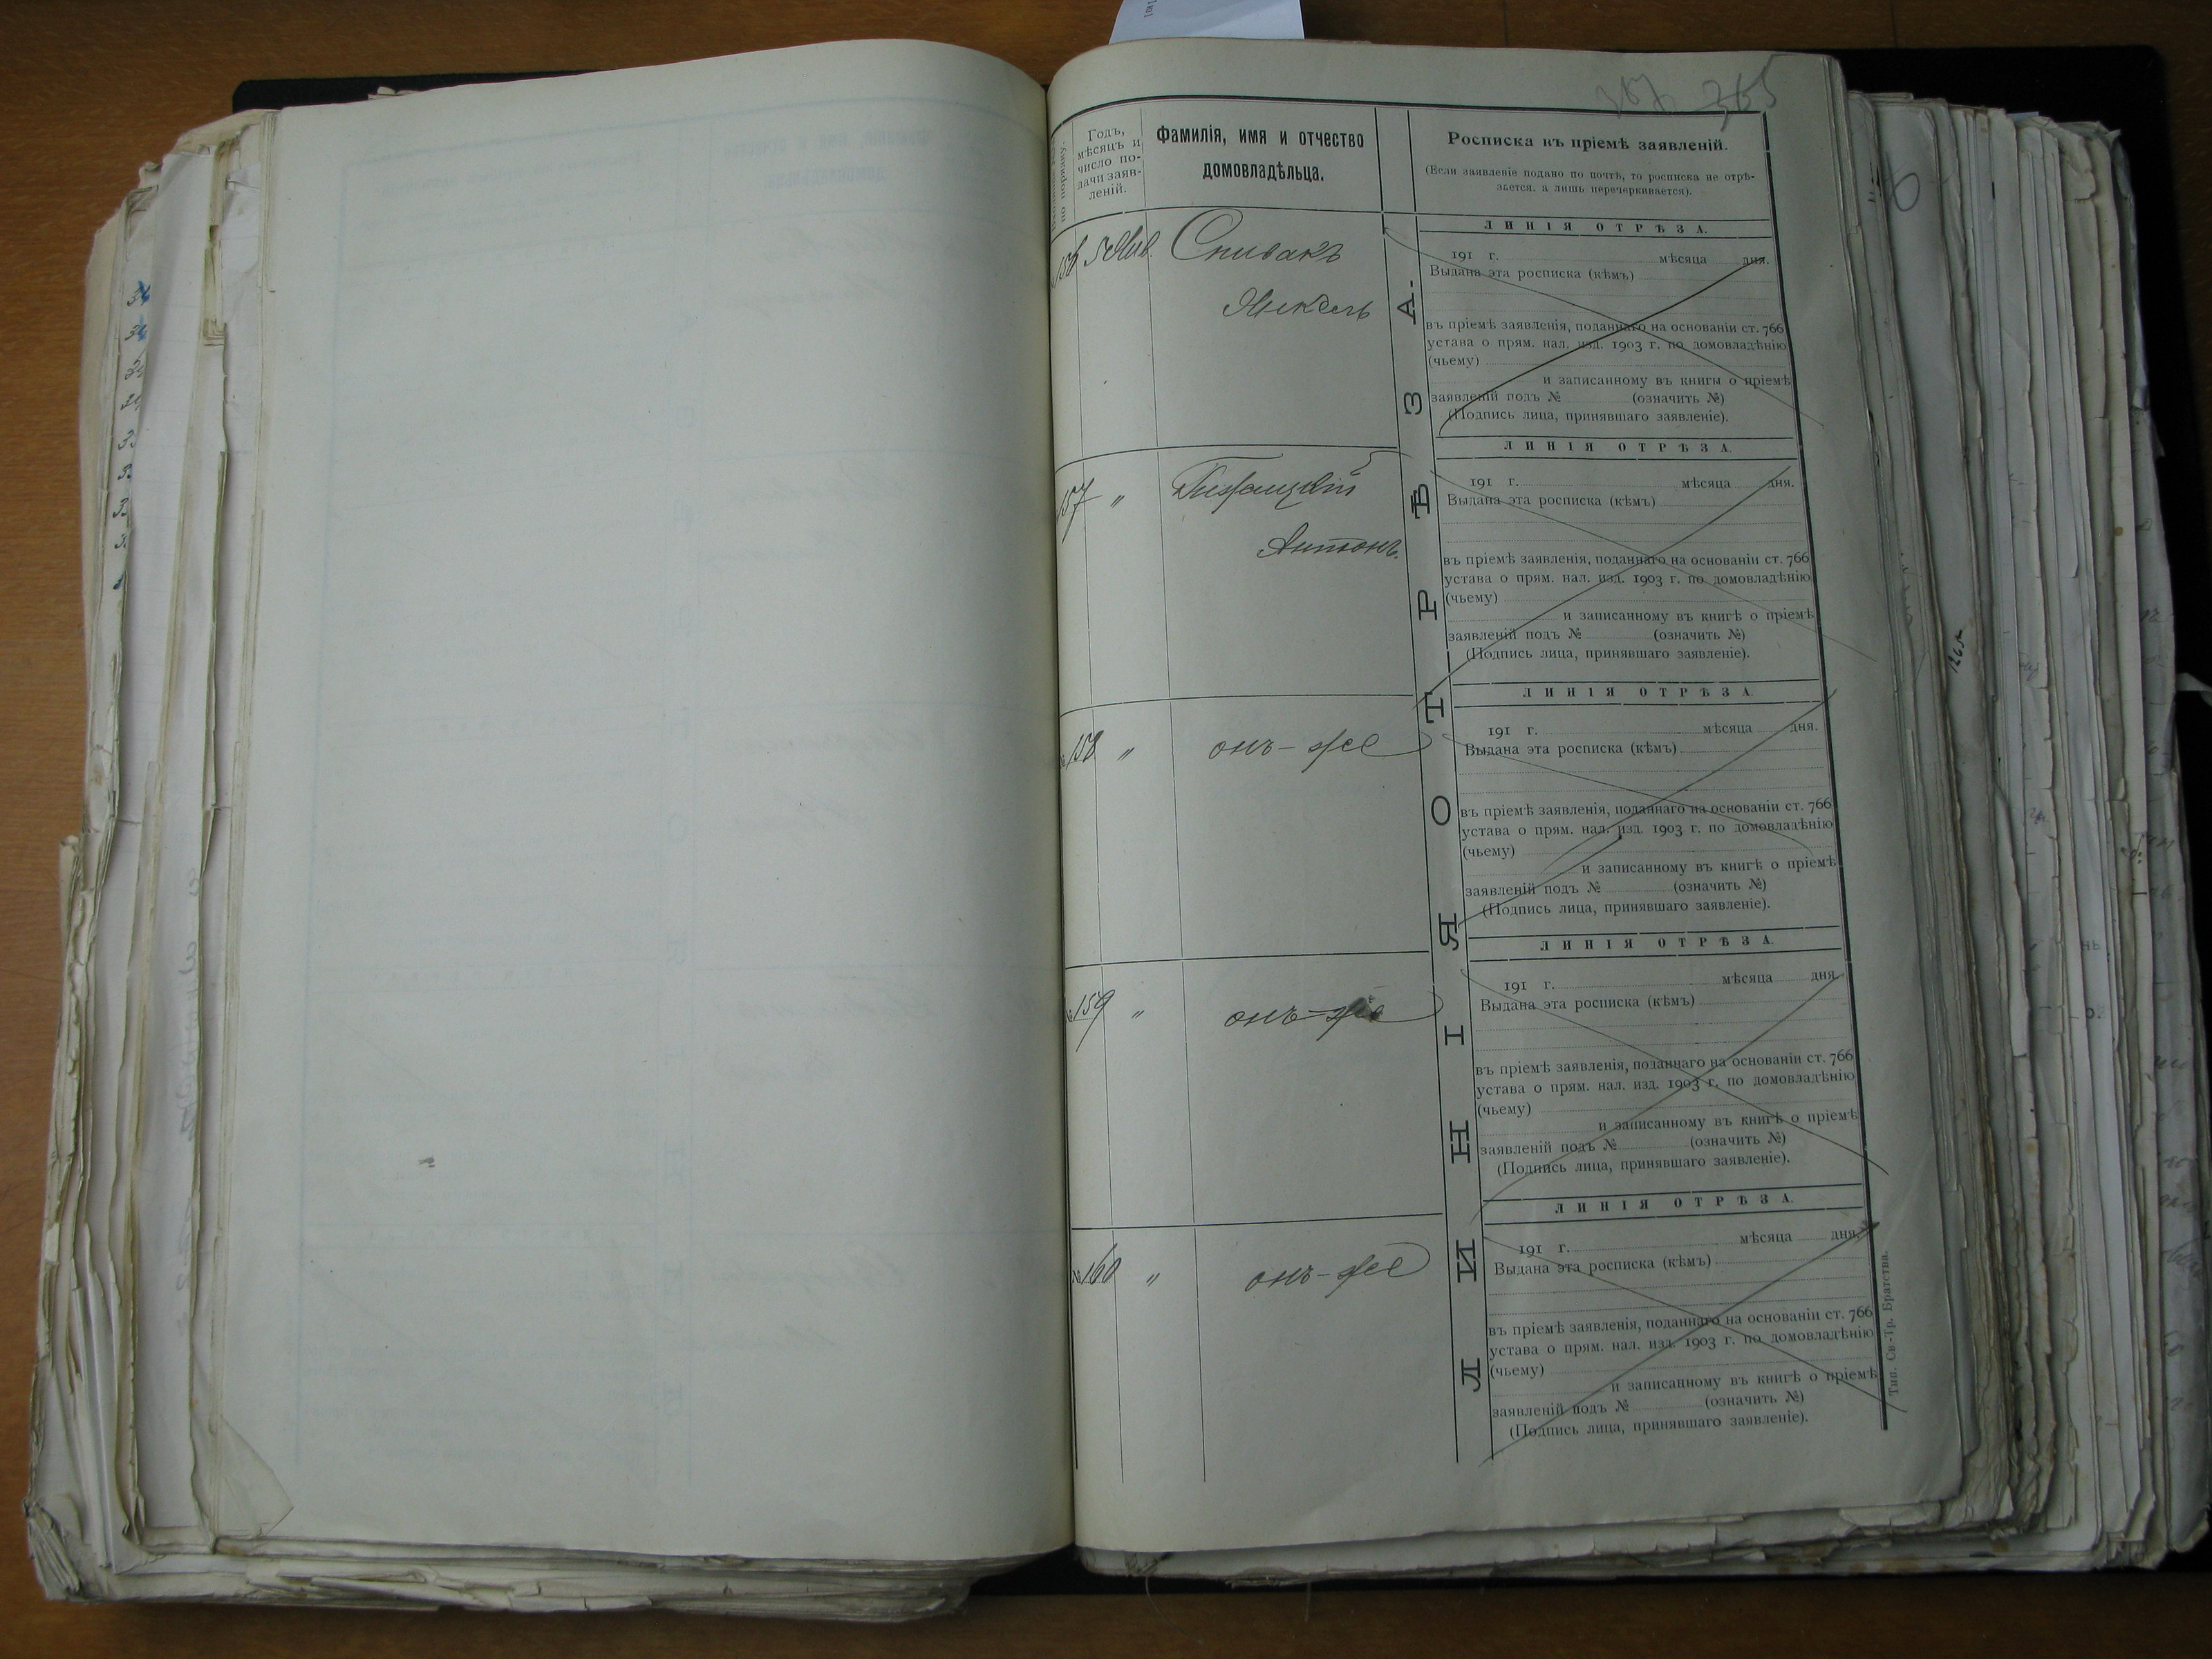 365
по порядку.
Годъ,
мѣсяцъ и
число по-
дачи заяв-
леній.
Фамилія, имя и отчество
домовладѣльца.
Росписка въ пріемѣ заявленій.
(Если заявленіе подано по почтѣ, то росписка не отрѣ-
зается, а лишь перечеркивается).
ЛИНІЯ ОТРѢЗА.
156 5 Янв. Спивакъ
Янкель
ЛИНІЯ ОТРѢЗА.
191 г. мѣсяца дня.
Выдана эта росписка (кѣмъ)
въ пріемѣ заявленія, поданнаго на основаніи ст. 766
устава о прям. нал. изд. 1903 г. по домовладѣнію
(чьему)
и записанному въ книгы о пріемѣ
заявленій подъ № (означить №)
(Подпись лица, принявшаго заявленіе).
157 "
Антонъ.
ЛИНІЯ ОТРѢЗА.
191 г. мѣсяца дня.
Выдана эта росписка (кѣмъ)
въ пріемѣ заявленія, поданнаго на основаніи ст. 766
устава о прям. нал. изд. 1903 г. по домовладѣнію
(чьему)
и записанному въ книгѣ о пріемѣ
заявленій подъ № (означить №)
(Подпись лица, принявшаго заявленіе).
№158 " онъ-же
ЛИНІЯ ОТРѢЗА.
191 г. мѣсяца дня.
Выдана эта росписка (кѣмъ)
въ пріемѣ заявленія, поданнаго на основаніи ст. 766
устава о прям. нал. изд. 1903 г. по домовладѣнію
(чьему)
и записанному въ книгѣ о пріемѣ
заявленій подъ № (означить №)
(Подпись лица, принявшаго заявленіе).
№159 " онъ-же
ЛИНІЯ ОТРѢЗА.
191 г. мѣсяца дня.
Выдана эта росписка (кѣмъ)
въ пріемѣ заявленія, поданнаго на основаніи ст. 766
устава о прям. нал. изд. 1903 г. по домовладѣнію
(чьему)
и записанному въ книгѣ о пріемѣ
заявленій подъ № (означить №)
(Подпись лица, принявшаго заявленіе).
№160 " онъ-же
ЛИНІЯ ОТРѢЗА.
191 г. мѣсяца дня.
Выдана эта росписка (кѣмъ)
въ пріемѣ заявленія, поданнаго на основаніи ст. 766
устава о прям. нал. изд. 1903 г. по домовладѣнію
(чьему)
и записанному въ книгѣ о пріемѣ
заявленій подъ № (означить №)
(Подпись лица, принявшаго заявленіе).
Тип. Св.-Тр. Братства.
1265